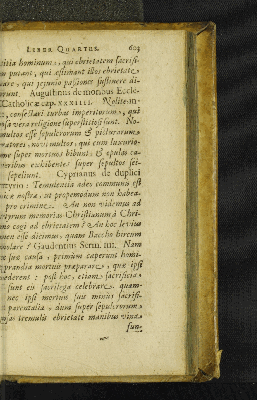 LIBER QUARTUS. 603
titia hominum, qui ebrietatem sacrifi-
putant, qui æstimant illos ebrietate
rare, qui jejunio passiones sustinere di-
. Augustinus de moribus Eccle-
Catholicæ cap. XXXIIII. Nolite in-
consectari turbas imperitorum, qui
vera religione superstitiosi sunt. No-
multos esse sepulcrorum & picturarum
ratores, novi multos, qui cum luxurio-
me super mortuos bibunt, & epulas ca-
veribus exhibentes super sepultos sei-
sepeliunt. Cyprianus de duplici
: Temulentia adeo communis est
nostræ, ut propemodum non habea-
pro crimine. An non videmus ad
tyrum memorias Christianum à Chri-
cogi ad ebrietatem? An hoc levius
men esse dicimus, quam Baccho hircum
? Gaudentius Serm. IIII. Nam
sua causa, primum cœperunt homi-
prandia mortuis præparare, quæ ipsi
: post hoc, etiam sacrificia
sunt eis sacrilega celebrare, quam-
nec ipsi mortuis suis minus sacrifi-
parentalia, dum super sepulcrorum
tremulis ebrietate manibus vina
fun-